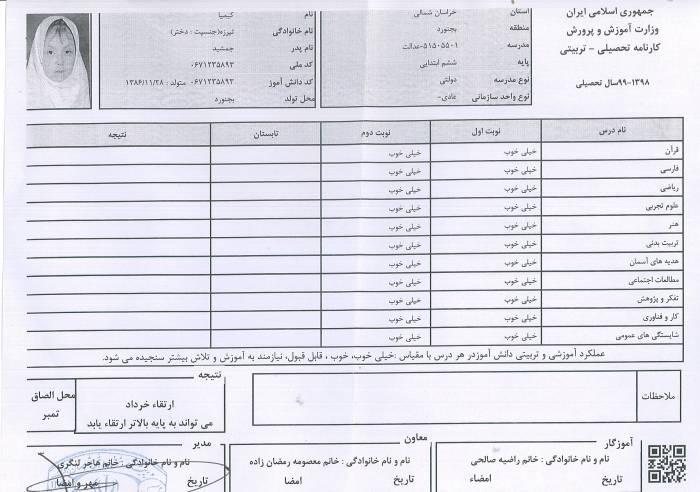 جمهوری اسلامی ایران
وزارت آموزش و پرورش
کارنامه تحصیلی - تربیتی
۱۳۹۸-۹۹سال تحصیلی
استان خراسان شمالی
منطقه بجنورد
مدرسه ۵۱۵۰۵۵۰۱-عدالت
پایه ششم ابتدایی
نوع مدرسه دولتی
نوع واحد سازمانی عادی-
نام کیمیا
نام خانوادگی تیرزه(جنسیت : دختر)
نام پدر جمشید
کد ملی ۰۶۷۱۲۳۵۸۹۳
کد دانش آموز ۰۶۷۱۲۳۵۸۹۳ متولد : ۱۳۸۶/۱۱/۲۸
محل تولد بجنورد
نام درس نوبت اول نوبت دوم تابستان نتیجه
قرآن خیلی خوب خیلی خوب
فارسی خیلی خوب خیلی خوب
ریاضی خیلی خوب خیلی خوب
علوم تجربی خیلی خوب خیلی خوب
هنر خیلی خوب خیلی خوب
تربیت بدنی خیلی خوب خیلی خوب
هدیه های آسمان خیلی خوب خیلی خوب
مطالعات اجتماعی خیلی خوب خیلی خوب
تفکر و پژوهش خیلی خوب خیلی خوب
کار و فناوری خیلی خوب خیلی خوب
شایستگی های عمومی خیلی خوب خیلی خوب
عملکرد آموزشی و تربیتی دانش آموزدر هر درس با مقیاس :خیلی خوب، خوب ، قابل قبول، نیازمند به آموزش و تلاش بیشتر سنجیده می شود.
ملاحظات
نتیجه
ارتقاء خرداد
می تواند به پایه بالاتر ارتقاء یابد
محل الصاق
تمبر
آموزگار
نام و نام خانوادگی : خانم راضیه صالحی
تاریخ امضاء
معاون
نام و نام خانوادگی : خانم معصومه رمضان زاده
تاریخ امضا
مدیر
نام و نام خانوادگی : خانم هاجر لنگری
تاریخ مهر و امضا